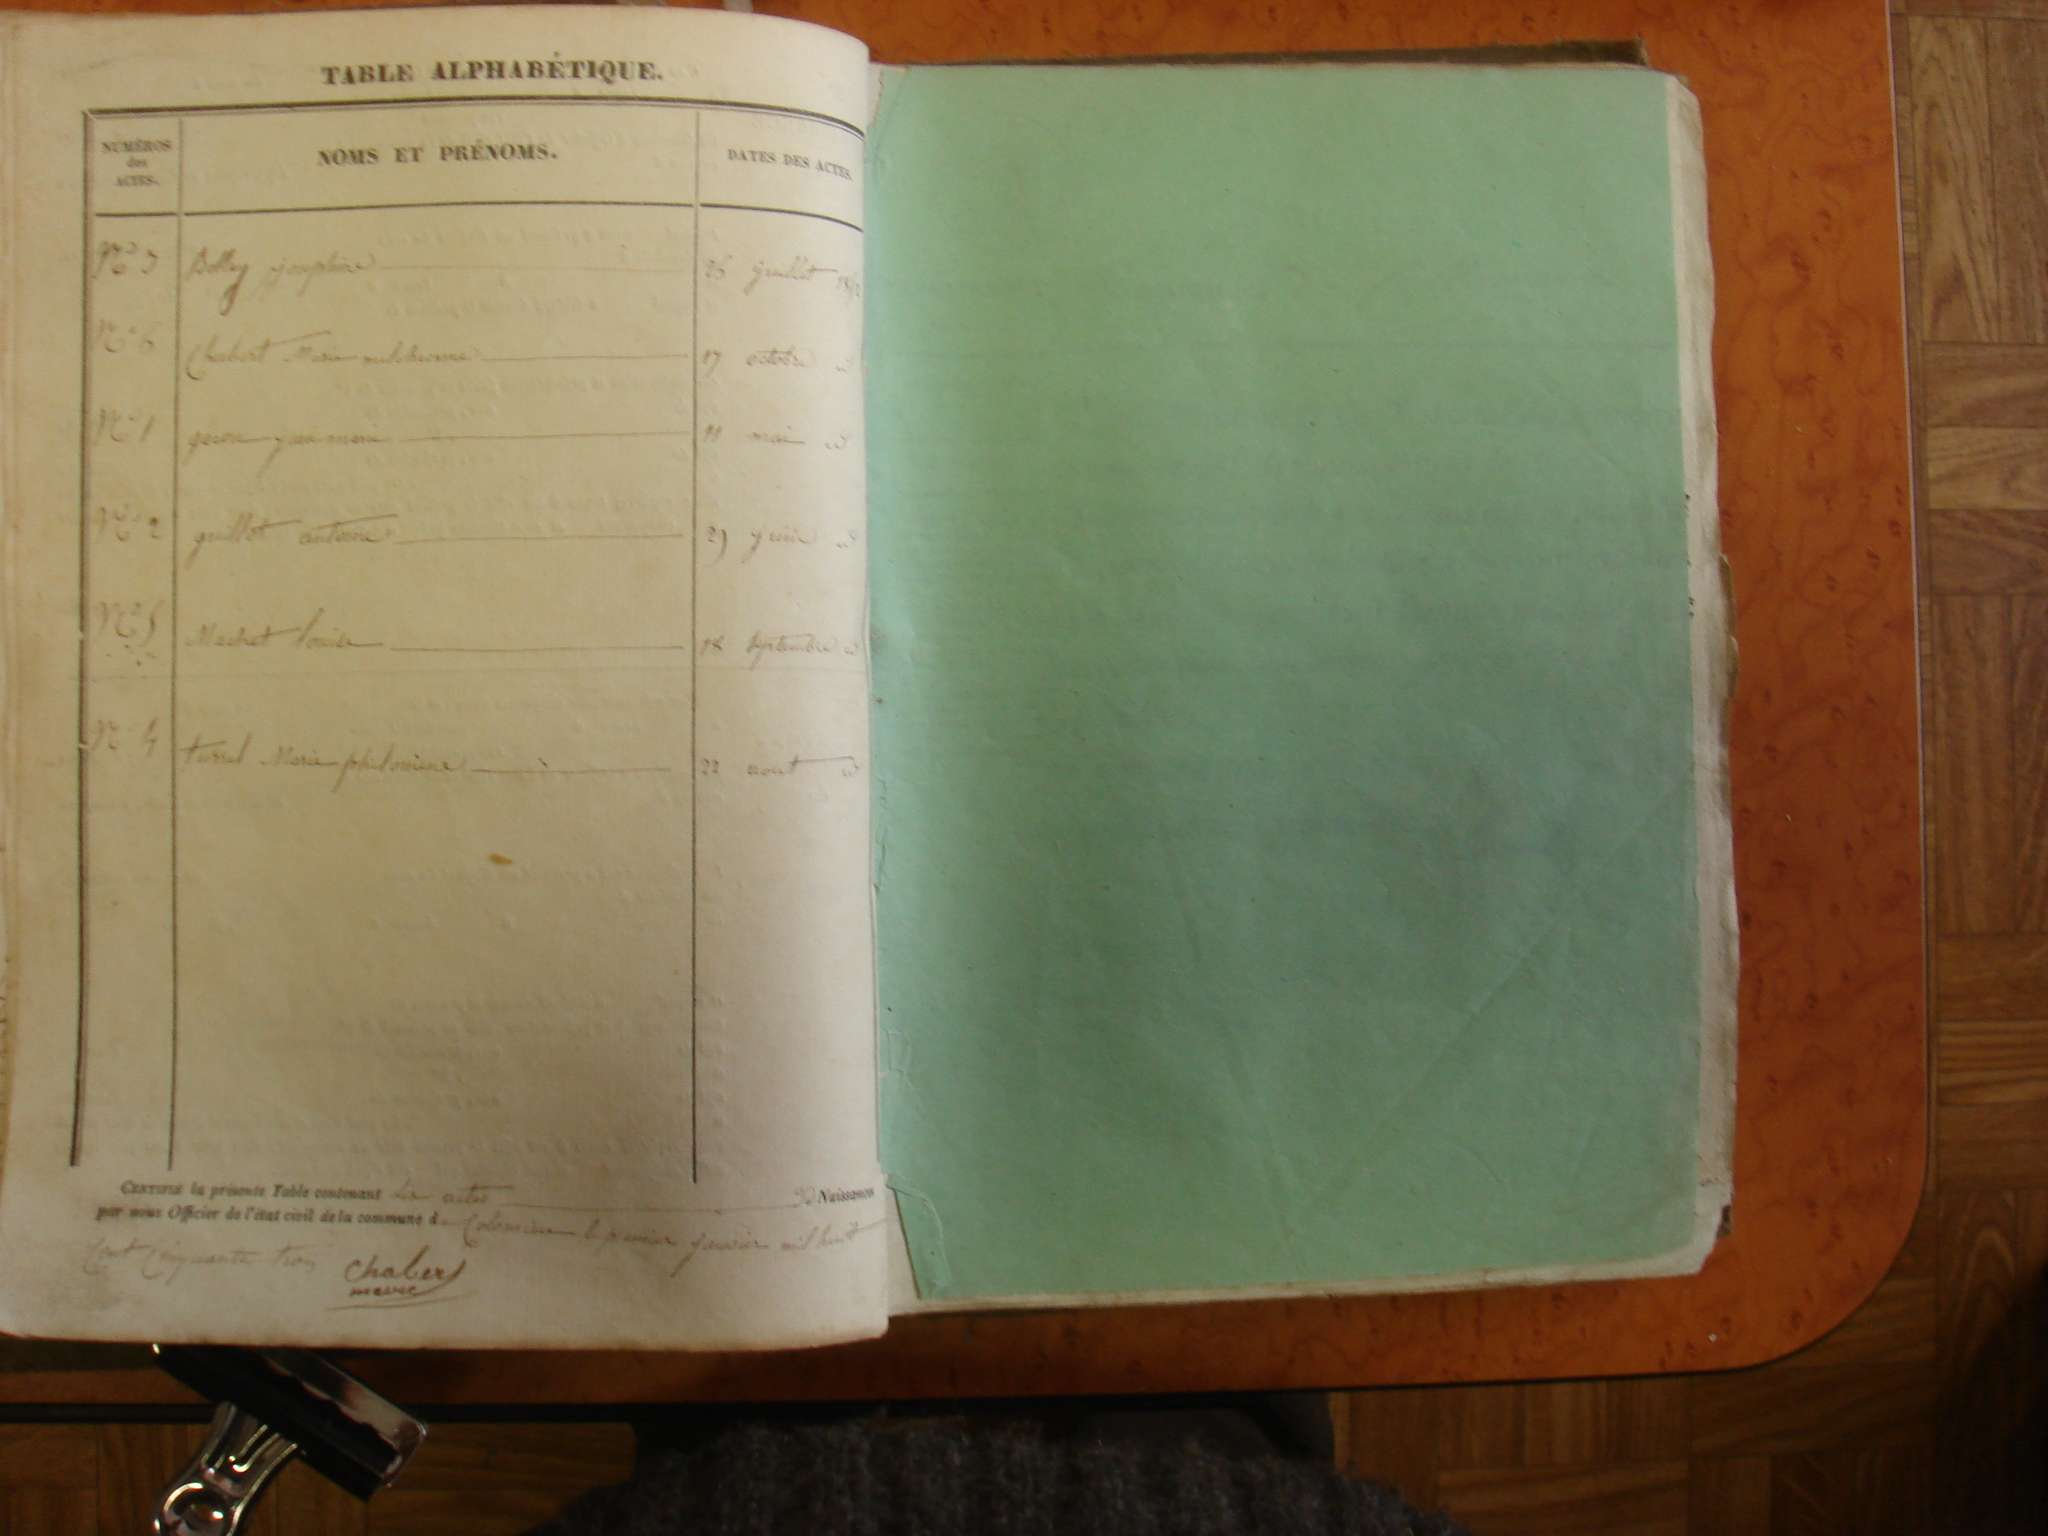 TABLE ALPHABÉTIQUE.
NUMÉROS des ACTES. NOMS ET PRÉNOMS. DATES DES ACTES.
N° 3 josephine 26 juillet
N° 6 Chabert Marie 17 octobre d
N° 1 jean marie 11 mai d
N° 2 guillot antoine 29 juin d
N° 5 Machet louise 18 Septembre d
N° 4 turrel Marie philomène 22 aout d
CERTIFIÉ la présente Table contenant Le actes de Naissances
par nous Officier de l'état civil de la commune d Colomieu le premier janvier mil huit
Cent Cinquante trois Chabert
maire